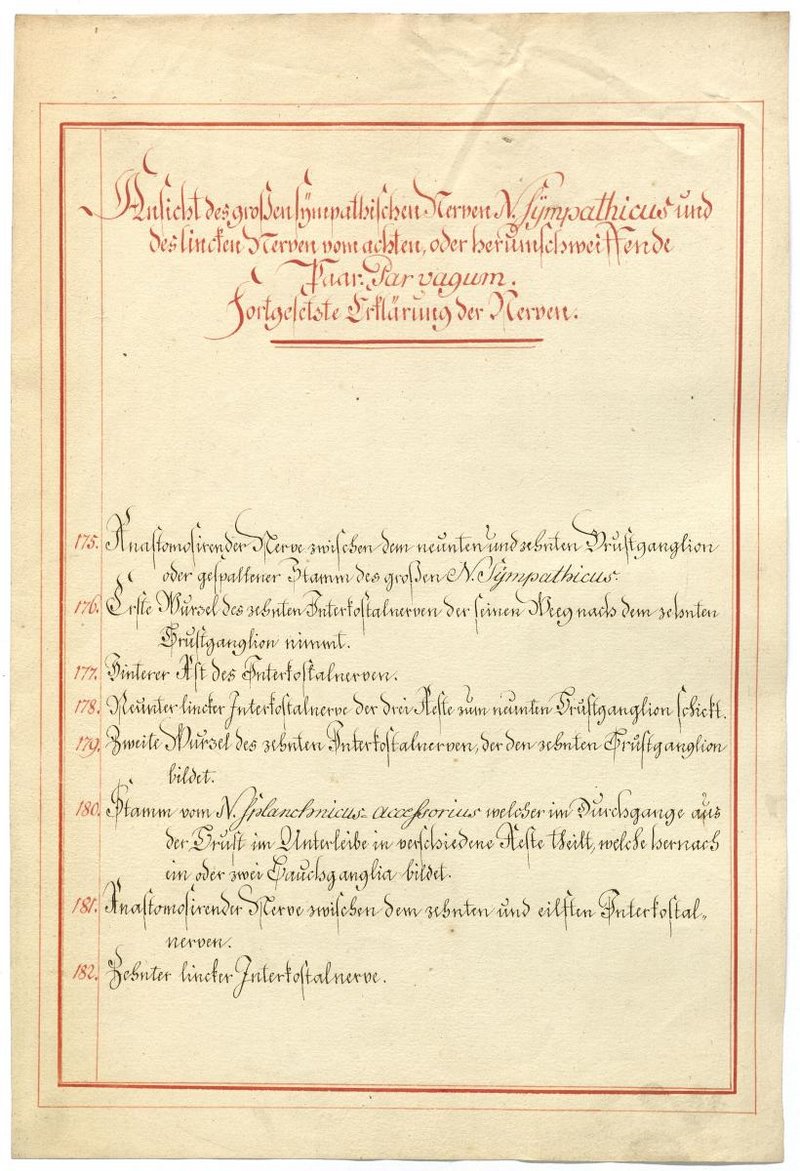 Ansicht des großen sÿmpathischen Nerven N. Sÿmpathicus und
des lincken Nerven vom achten, oder herumschweiffende
Paar. Par vagum.
Fortgesetste Erklärung der Nerven.
175. Anastomosirender Nerve zwischen dem neunten und zehnten Brustganglion
oder gespaltener Stamm des großen N. Sÿmpathicus.
176. Erste Wurzel des zehnten Interkostalnerven der seinen Weeg nach dem zehnten
Brustganglion nimmt.
177. Hinterer Ast des Interkostalnerven.
178. Neunter lincker Interkostalnerve der drei Aeste zum neunten Brustganglion schickt.
179. Zweite Wurzel des zehnten Interkostalnerven, der den zehnten Brustganglion
bildet.
180. Stamm vom N. Splanchnicus accessorius welcher im Durchgange aus
der Brust im Unterleibe in verschiedene Aeste theilt, welche hernach
ein oder zwei Bauchganglia bildet.
181. Anastomosirender Nerve zwischen dem zehnten und eilften Interkostal„
nerven.
182. Zehnter lincker Interkostalnerve.